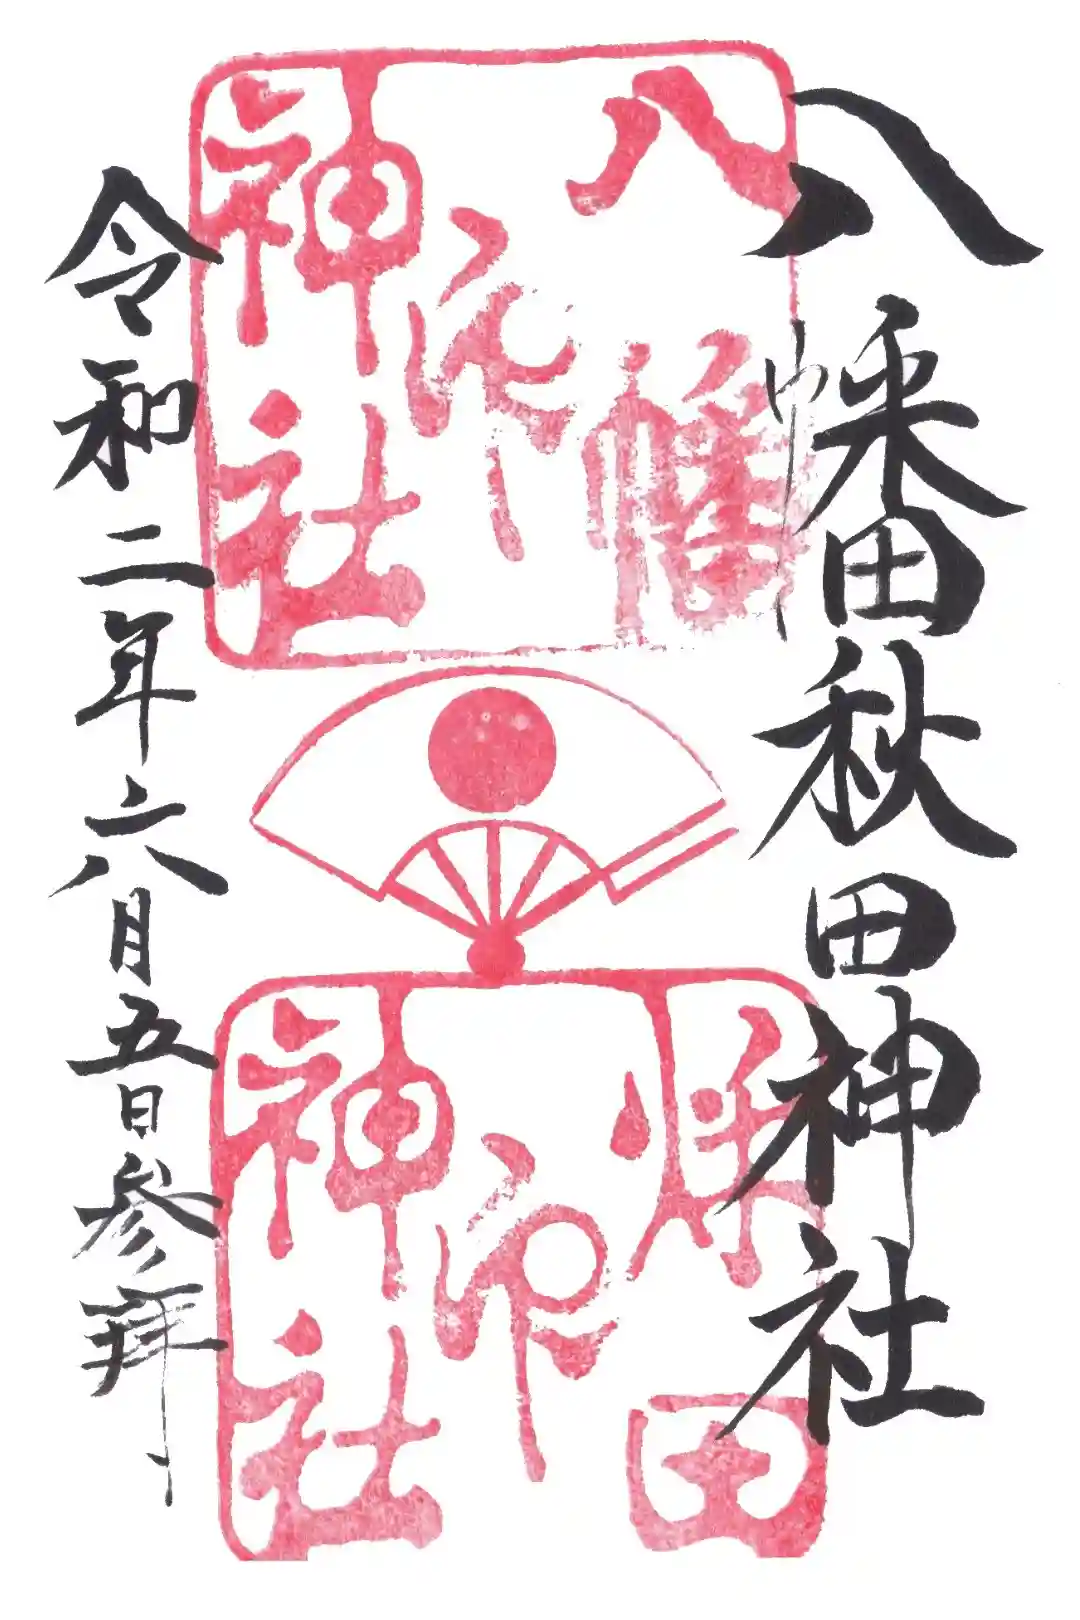 八幡秋田神社
八幡
神社印
秋田
神社印
令和二年六月五日参拝